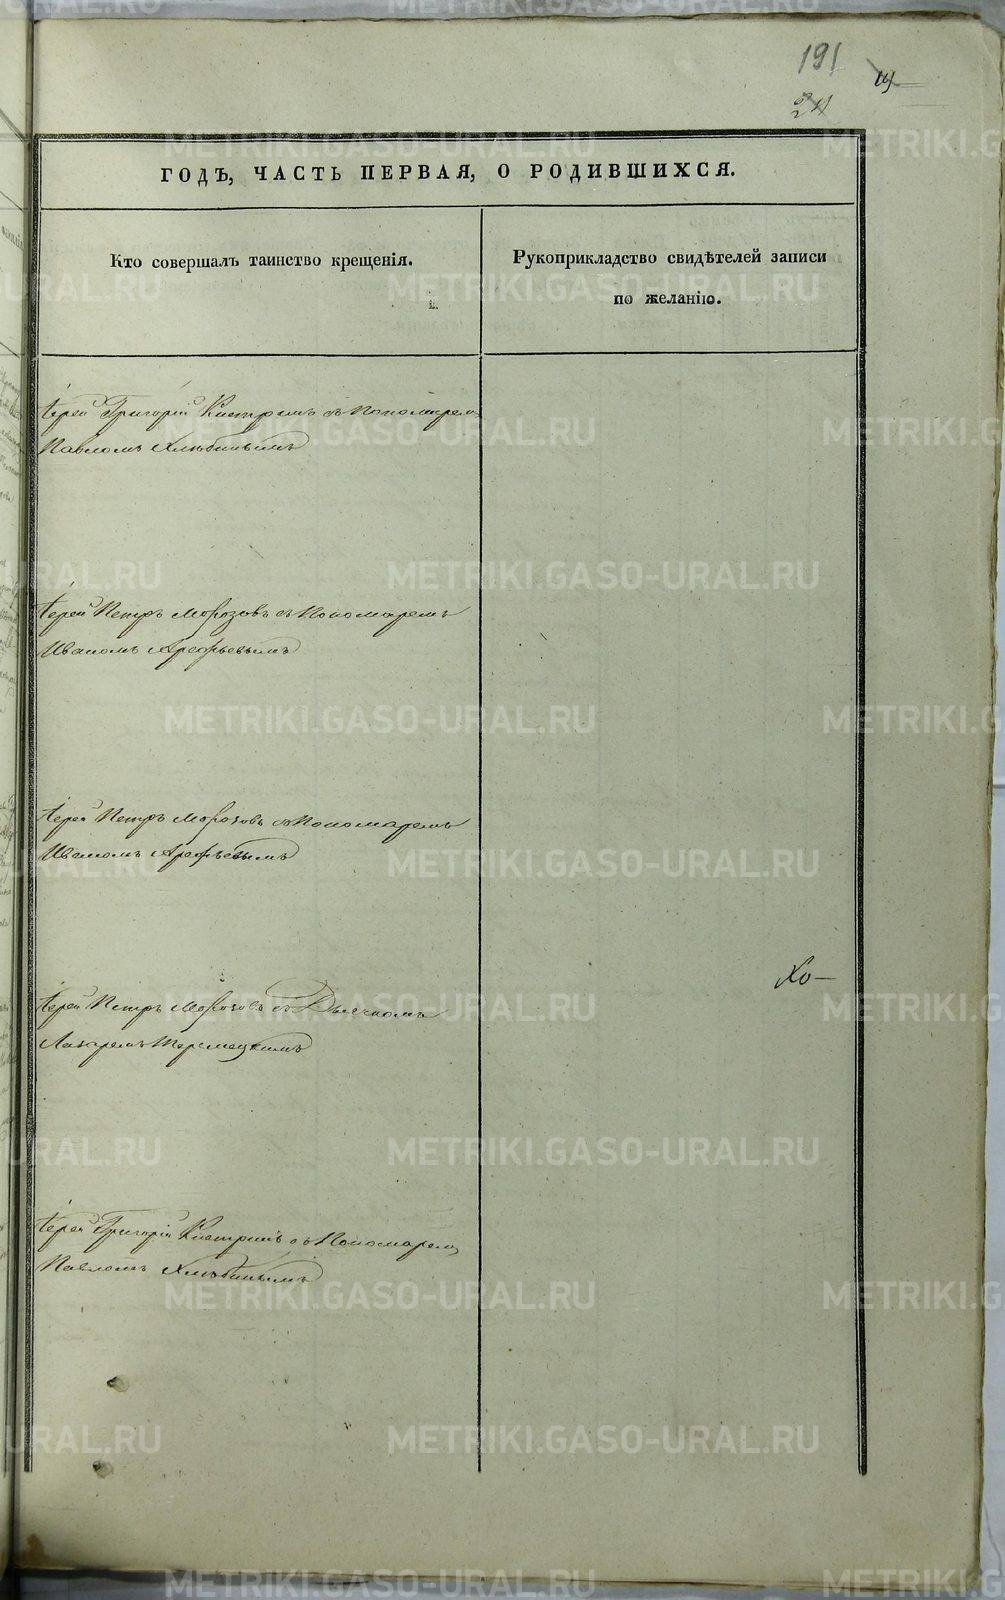 191
ГОДЪ, ЧАСТЬ ПЕРВАЯ, О РОДИВШИХСЯ.
Кто совершалъ таинство крещенія.
Рукоприкладство свидѣтелей записи
по желанію.
Іерей Григорій съ Пономаремъ
Павломъ Хлѣбинымъ
Іерей Петръ Морозовъ съ Пономаремъ
Иваномъ Арефьевымъ
Іерей Петръ Морозовъ съ Пономаремъ
Иваномъ Арефьевымъ
Іерей Петръ Морозовъ съ Дьячкомъ
Лазаремъ
Хо—
Іерей Григорій съ Пономаремъ
Павломъ Хлѣбинымъ
METRIKI.GASO-URAL.RU